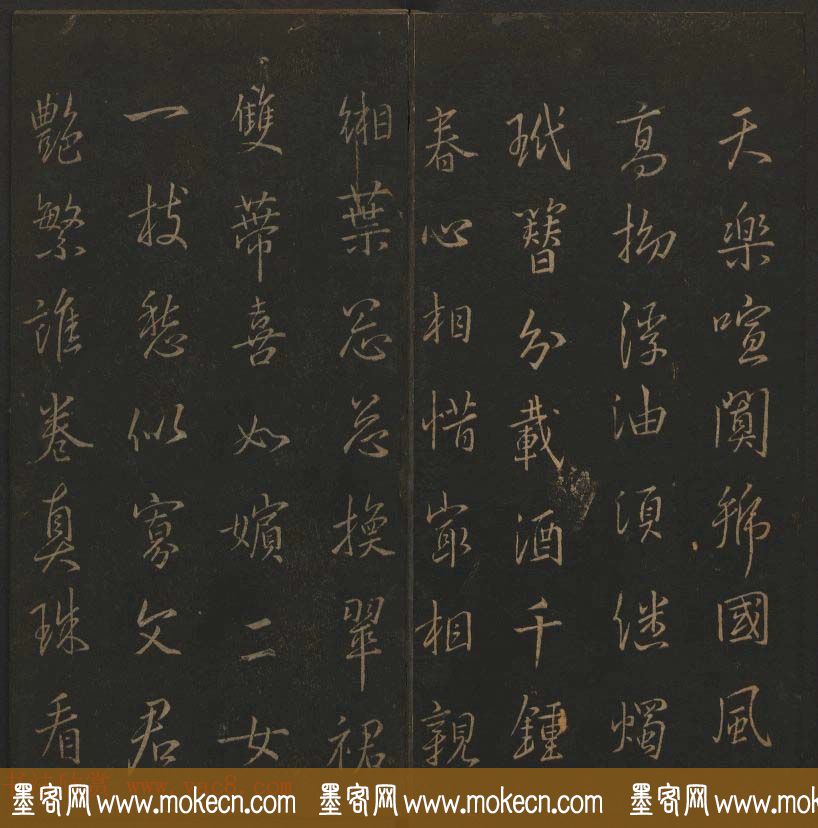 天樂喧闐國風
高浮油須继燭
玳簪分載酒千鍾
春心相惜㝡相親
緗葉怱怱換翠裙
雙蒂喜如嬪二女
一枝愁似寡文君
艷繁誰卷真珠看
书法欣赏 www.yac8.com
墨客网 www.mokecn.com 墨客网 www.mokecn.com 墨客网 www.mokecn.com